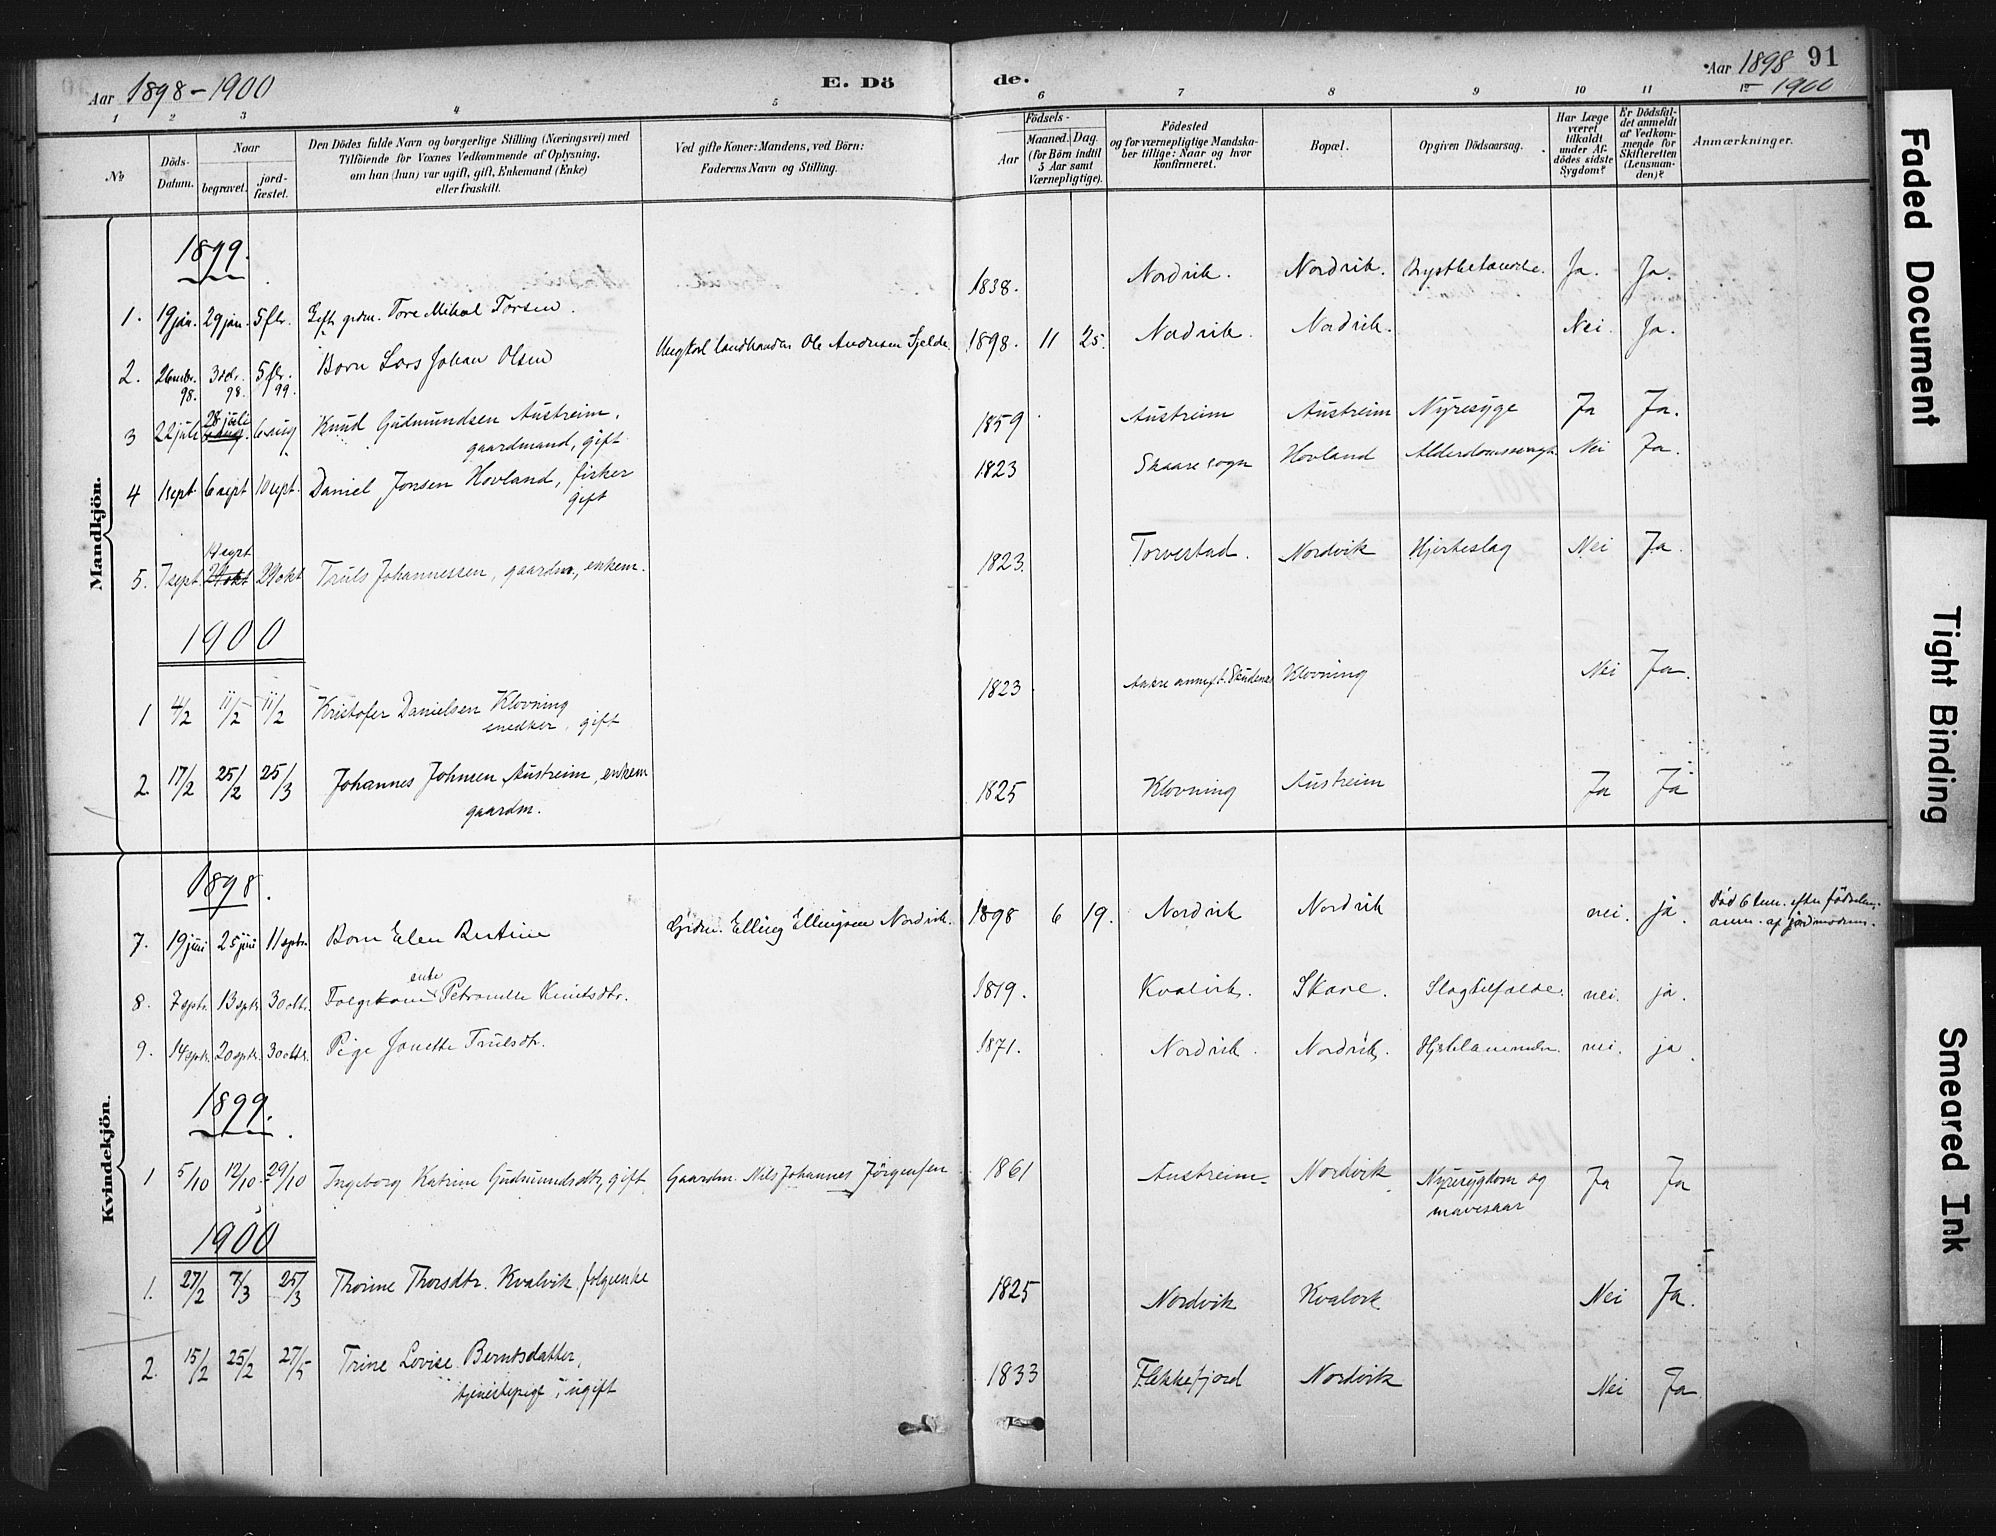 Aar 1898-1900
E. Dö
de.
Aar 1898
- 1900
91
1 2 3 4 5 6 7 8 9 10 11 12
No
Döds-
Datum.
Naar
begravet.
jord-
fæstet.
Den Dödes fulde Navn og borgerlige Stilling (Næringsvei) med
Tilföiende for Voxnes Vedkommende af Oplysning,
om han (hun) var ugift, gift, Enkemand (Enke)
eller fraskilt.
Ved gifte Koner: Mandens, ved Börn:
Faderens Navn og Stilling.
Födsels-
Aar
Maaned.
Dag.
(for Börn indtil
5 Aar samt
Værnepligtige).
Födested
og for værnepligtige Mandska-
ber tillige: Naar og hvor
konfirmeret.
Bopæl.
Opgiven Dödsaarsag.
Har Læge
været
tilkaldt
under Af-
dödes sidste
Sygdom?
Er Dödsfal-
det anmeldt
af Vedkom-
mende for
Skifteretten
(Lensman-
den)?
Anmærkninger.
Mandkjön.
1899.
1. 19 jan. 29 jan. 5 fbr. Gift grdm. Tore Mikal Torsen. 1838. Nordvik. Nordvik. Ja. Ja.
2. 26 nvbr. 98. 3 dcbr. 98. 5 fbr. 99. Barn Lars Johan Olsen Ungkarl landhandler Ole Andersen 1898. 11 25. Nordvik. Nordvik. Nei. Ja.
3 22 juli 28 juli 6 aug. 6 aug Knud Gudmundsen Austreim,
gaardmand, gift 1859 Austreim Austreim Nyresyge Ja Ja.
4 1 sept. 6 sept 10 sept. Daniel Jonsen Hovland, fisker
gift 1823 Skaare sogn Hovland Nei Ja.
5. 7 sept. 14 sept 29 okt 29 okt Truls Johannessen, gaardm, enkem. 1823. Torvestad. Nordvik Hjerteslag Nei Ja.
1900
1 4/2 11/2 11/2 Kristofer Danielsen Klovning
snedker, gift 1823 Klovning Nei Ja.
2. 17/2 25/2 25/3 Johannes Johnsen Austreim, enkem
gaardm. 1825 Klovning Austreim Ja Ja
Kvindekjön.
1898.
7. 19 juni 25 juni 11 sptbr. Barn Elen Bertine Grdm. Elling Ellingsen Nordvik. 1898 6 19. Nordvik Nordvik nei. ja. Död 6 tim. efter födselen,
anm. af jordmoderen.
8. 7 sptbr. 13 sptbr. 30 oktbr. enke Petronelle Knutsdtr. 1819. Kvalvik. Skare. Slagtilfælde. nei. ja.
9. 14 sptbr. 20 sptbr. 30 oktbr. Pige Janette Trulsdtr. 1871. Nordvik. Nordvik. nei. ja.
1899.
1 5/10 12/10 29/10 Ingeborg Katrine Gudmundsdtr, gift Gaardm. Nils Johannes Jörgensen 1861 Austreim Nordvik Nyresygdom og
mavesaar Ja Ja
1900
1. 27/2 7/3 25/3 Thorine Thorsdtr. Kvalvik, folgeenke 1825 Nordvik Kvalvik Nei Ja.
2. 15/2 25/2 27/5 Trine Lovise Berntsdatter,
tjenestepige, ugift 1833 Flekkefjord Nordvik Nei Ja
Faded Document
Tight Binding
Smeared Ink